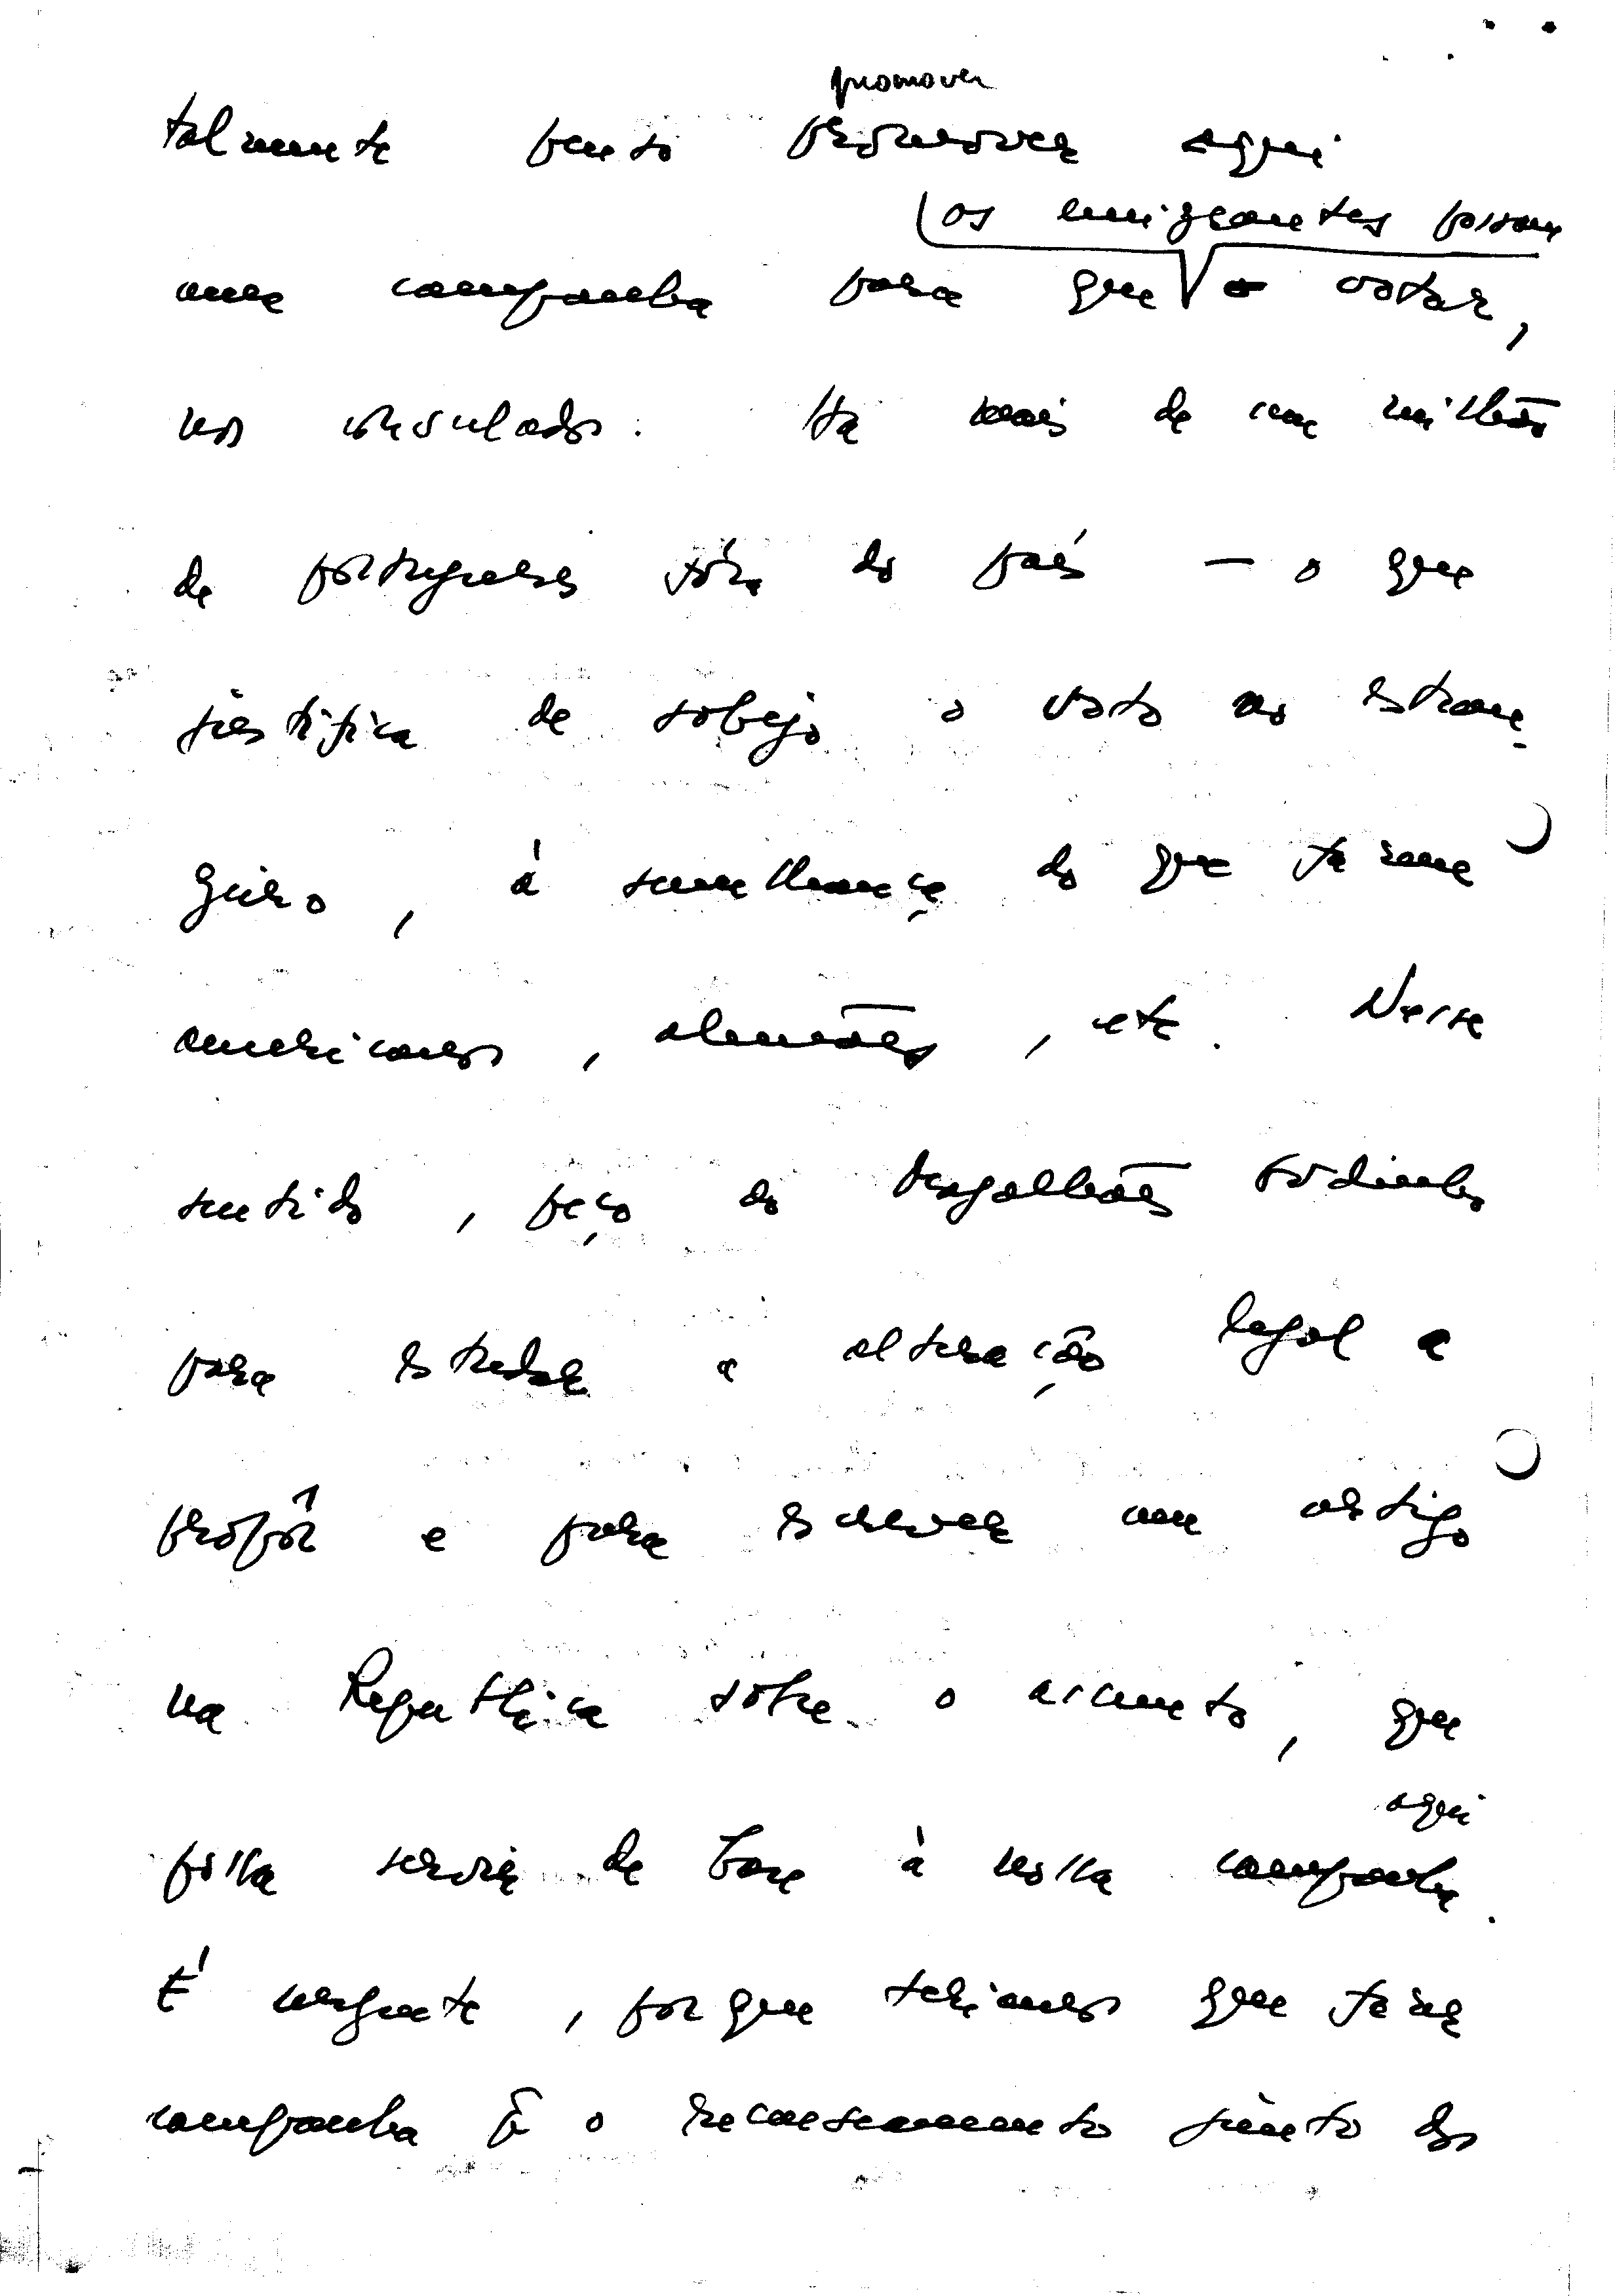 promover
talmente penso promover aqui
os emigrantes possam
uma campanha para que o votar,
nos consulados. Há mais de um milhão
de portugueses fóra do país — o que
justifica de sobejo o voto no estran-
geiro, à semelhança do que fazem
americanos, alemães, etc. Nesse
sentido, peço ao Magalhães Godinho
para estudar a alteração legal a
propôr e para escrever um artigo
na República sobre o assunto, que
aqui
possa servir de base à nossa campanha.
É urgente, porque teriamos que fazer
campanha p.ª o recenseamento junto dos